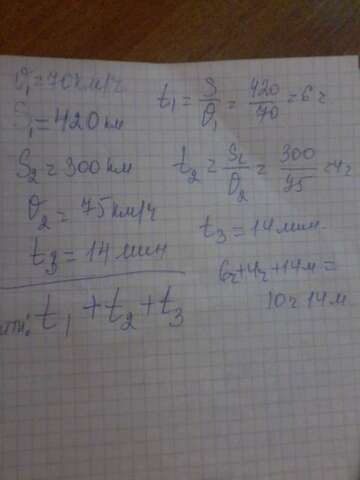 υ₁=70км/ч
S₁=420км
S₂=300км
υ₂=75км/ч
t₃=14мин
t₁+t₂+t₃
t₁=S/υ₁=420/70=6ч
t₂=S₂/υ₂=300/75=4ч
t₃=14мин.
6ч+4ч+14м=
10ч14м